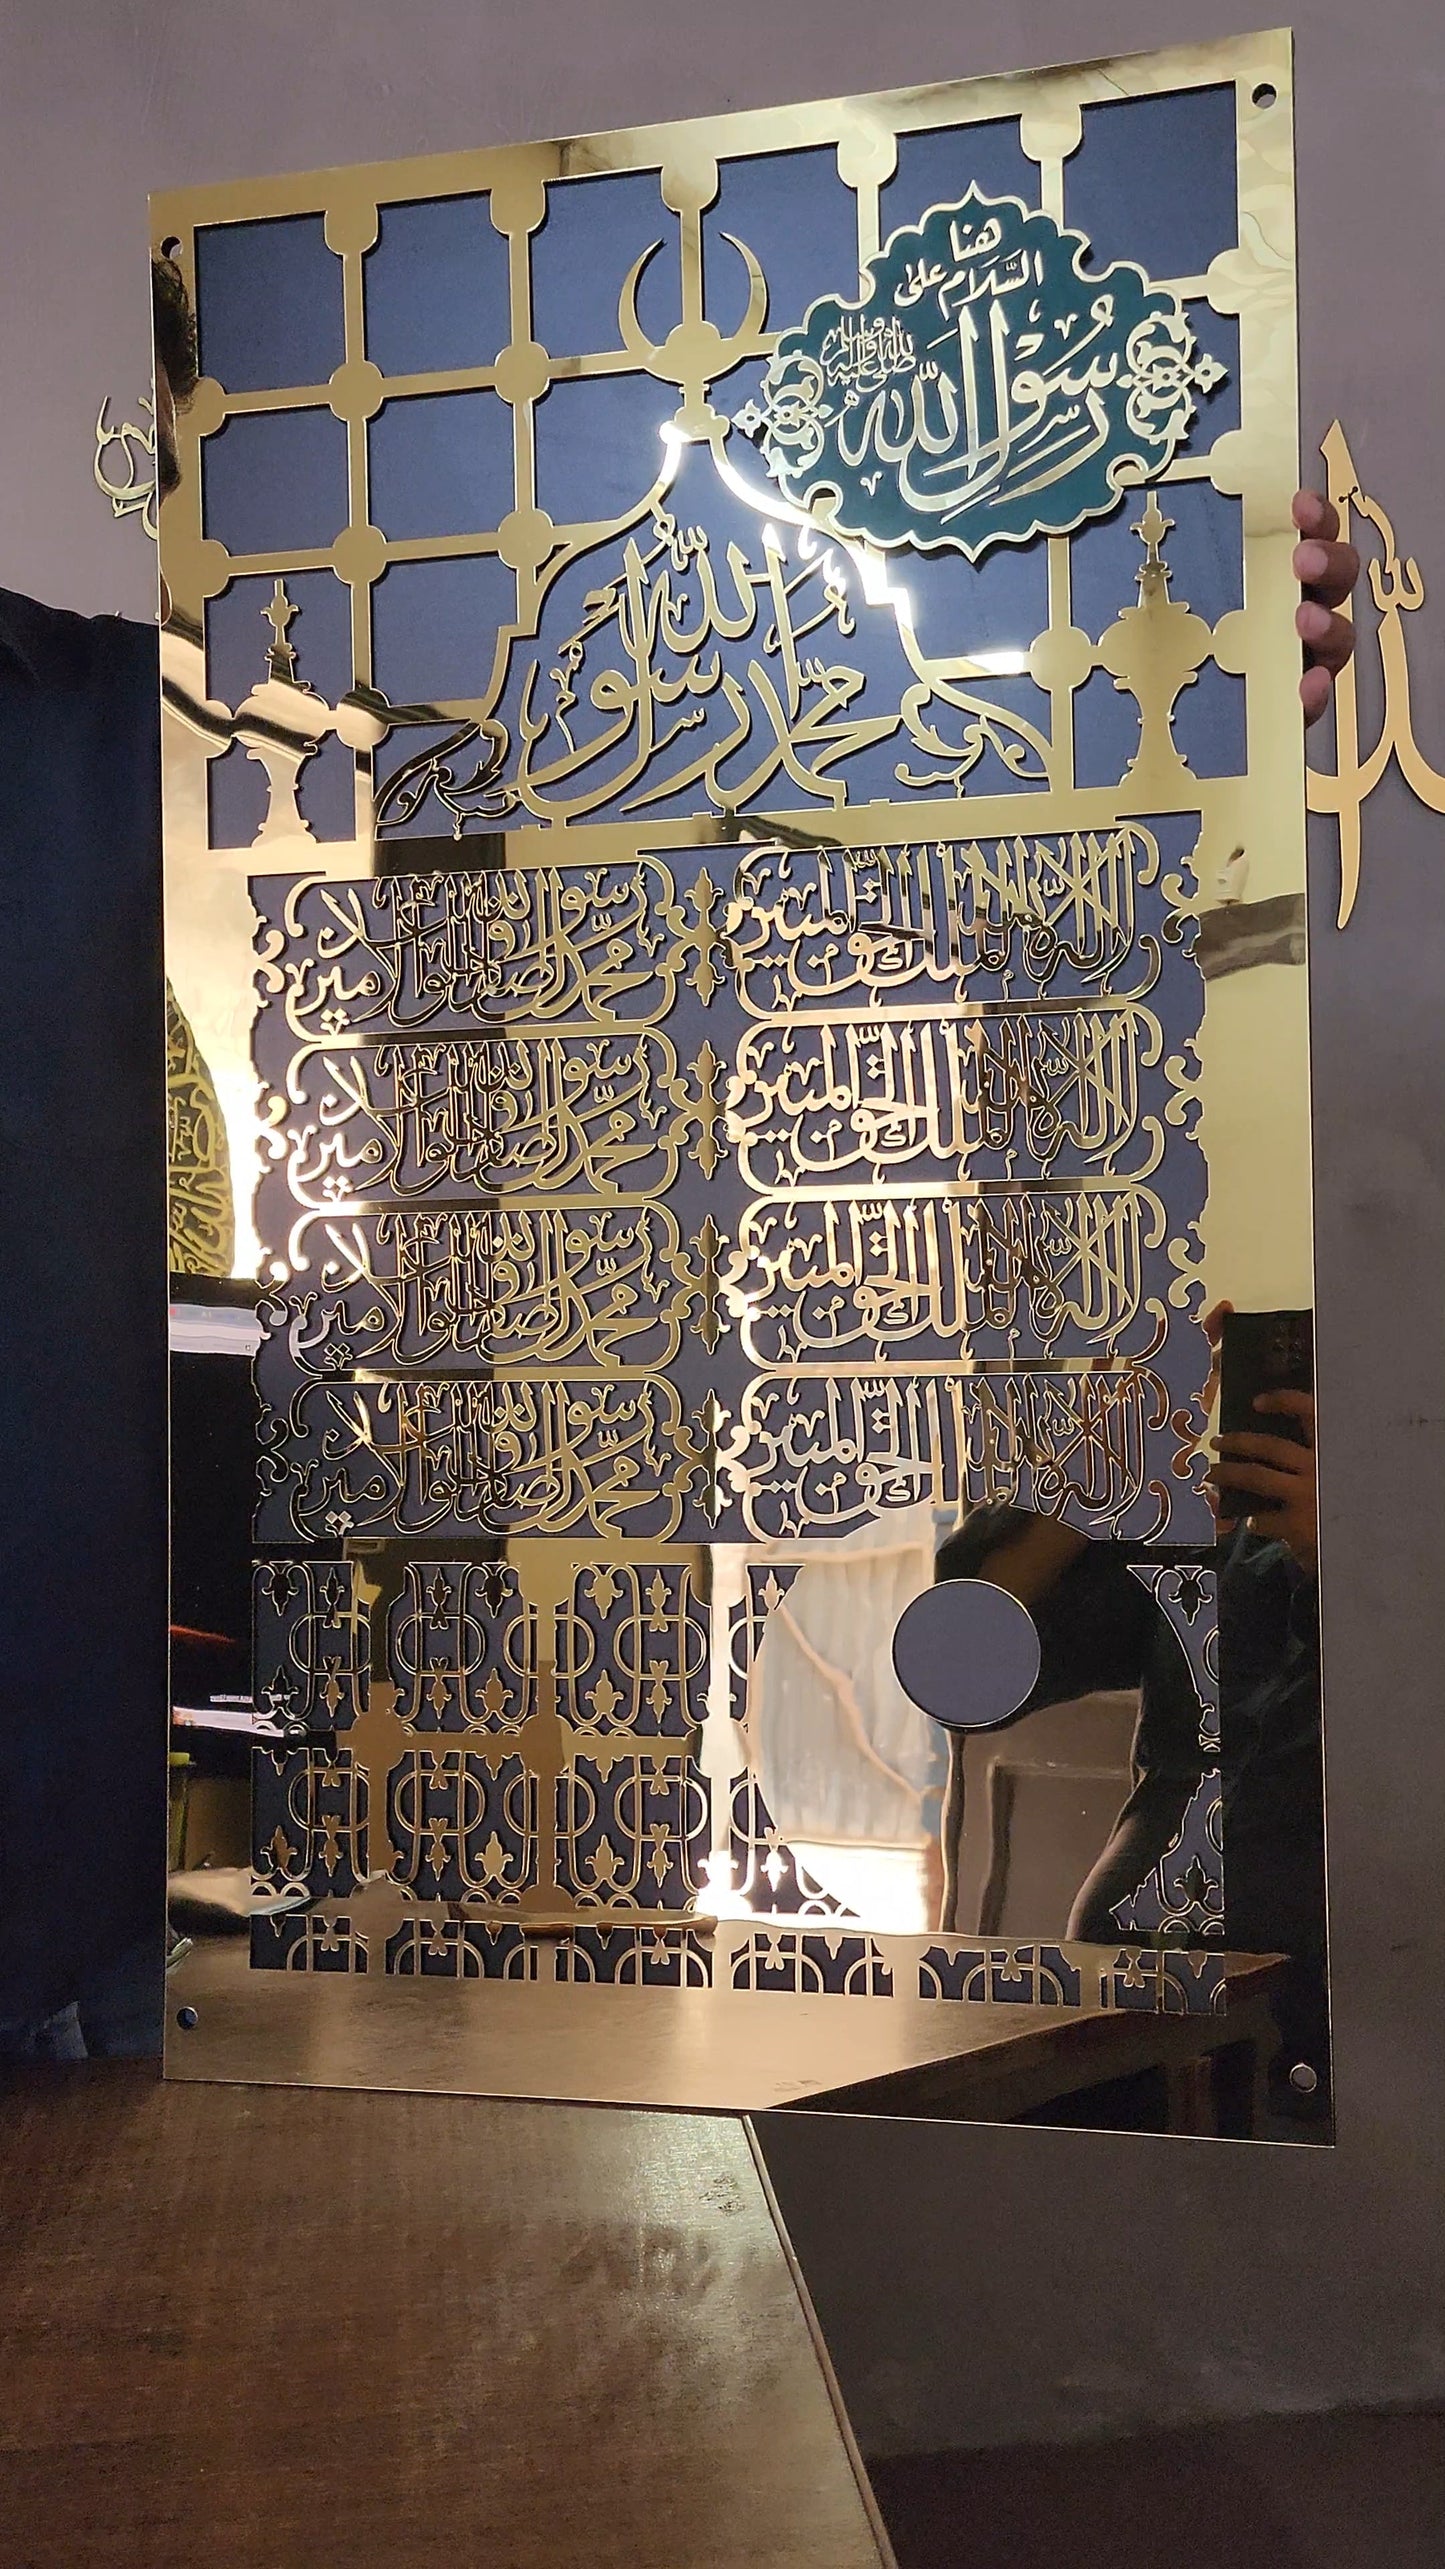 هنا
السَّلَام على
رَسُوْلِ اللّٰه
صلى الله عليه وآله وسلم
محمد رسول الله
لا اله الا الله الملك الحق المبين
محمد رسول الله الصادق الوعد الامين
لا اله الا الله الملك الحق المبين
محمد رسول الله الصادق الوعد الامين
لا اله الا الله الملك الحق المبين
محمد رسول الله الصادق الوعد الامين
لا اله الا الله الملك الحق المبين
محمد رسول الله الصادق الوعد الامين